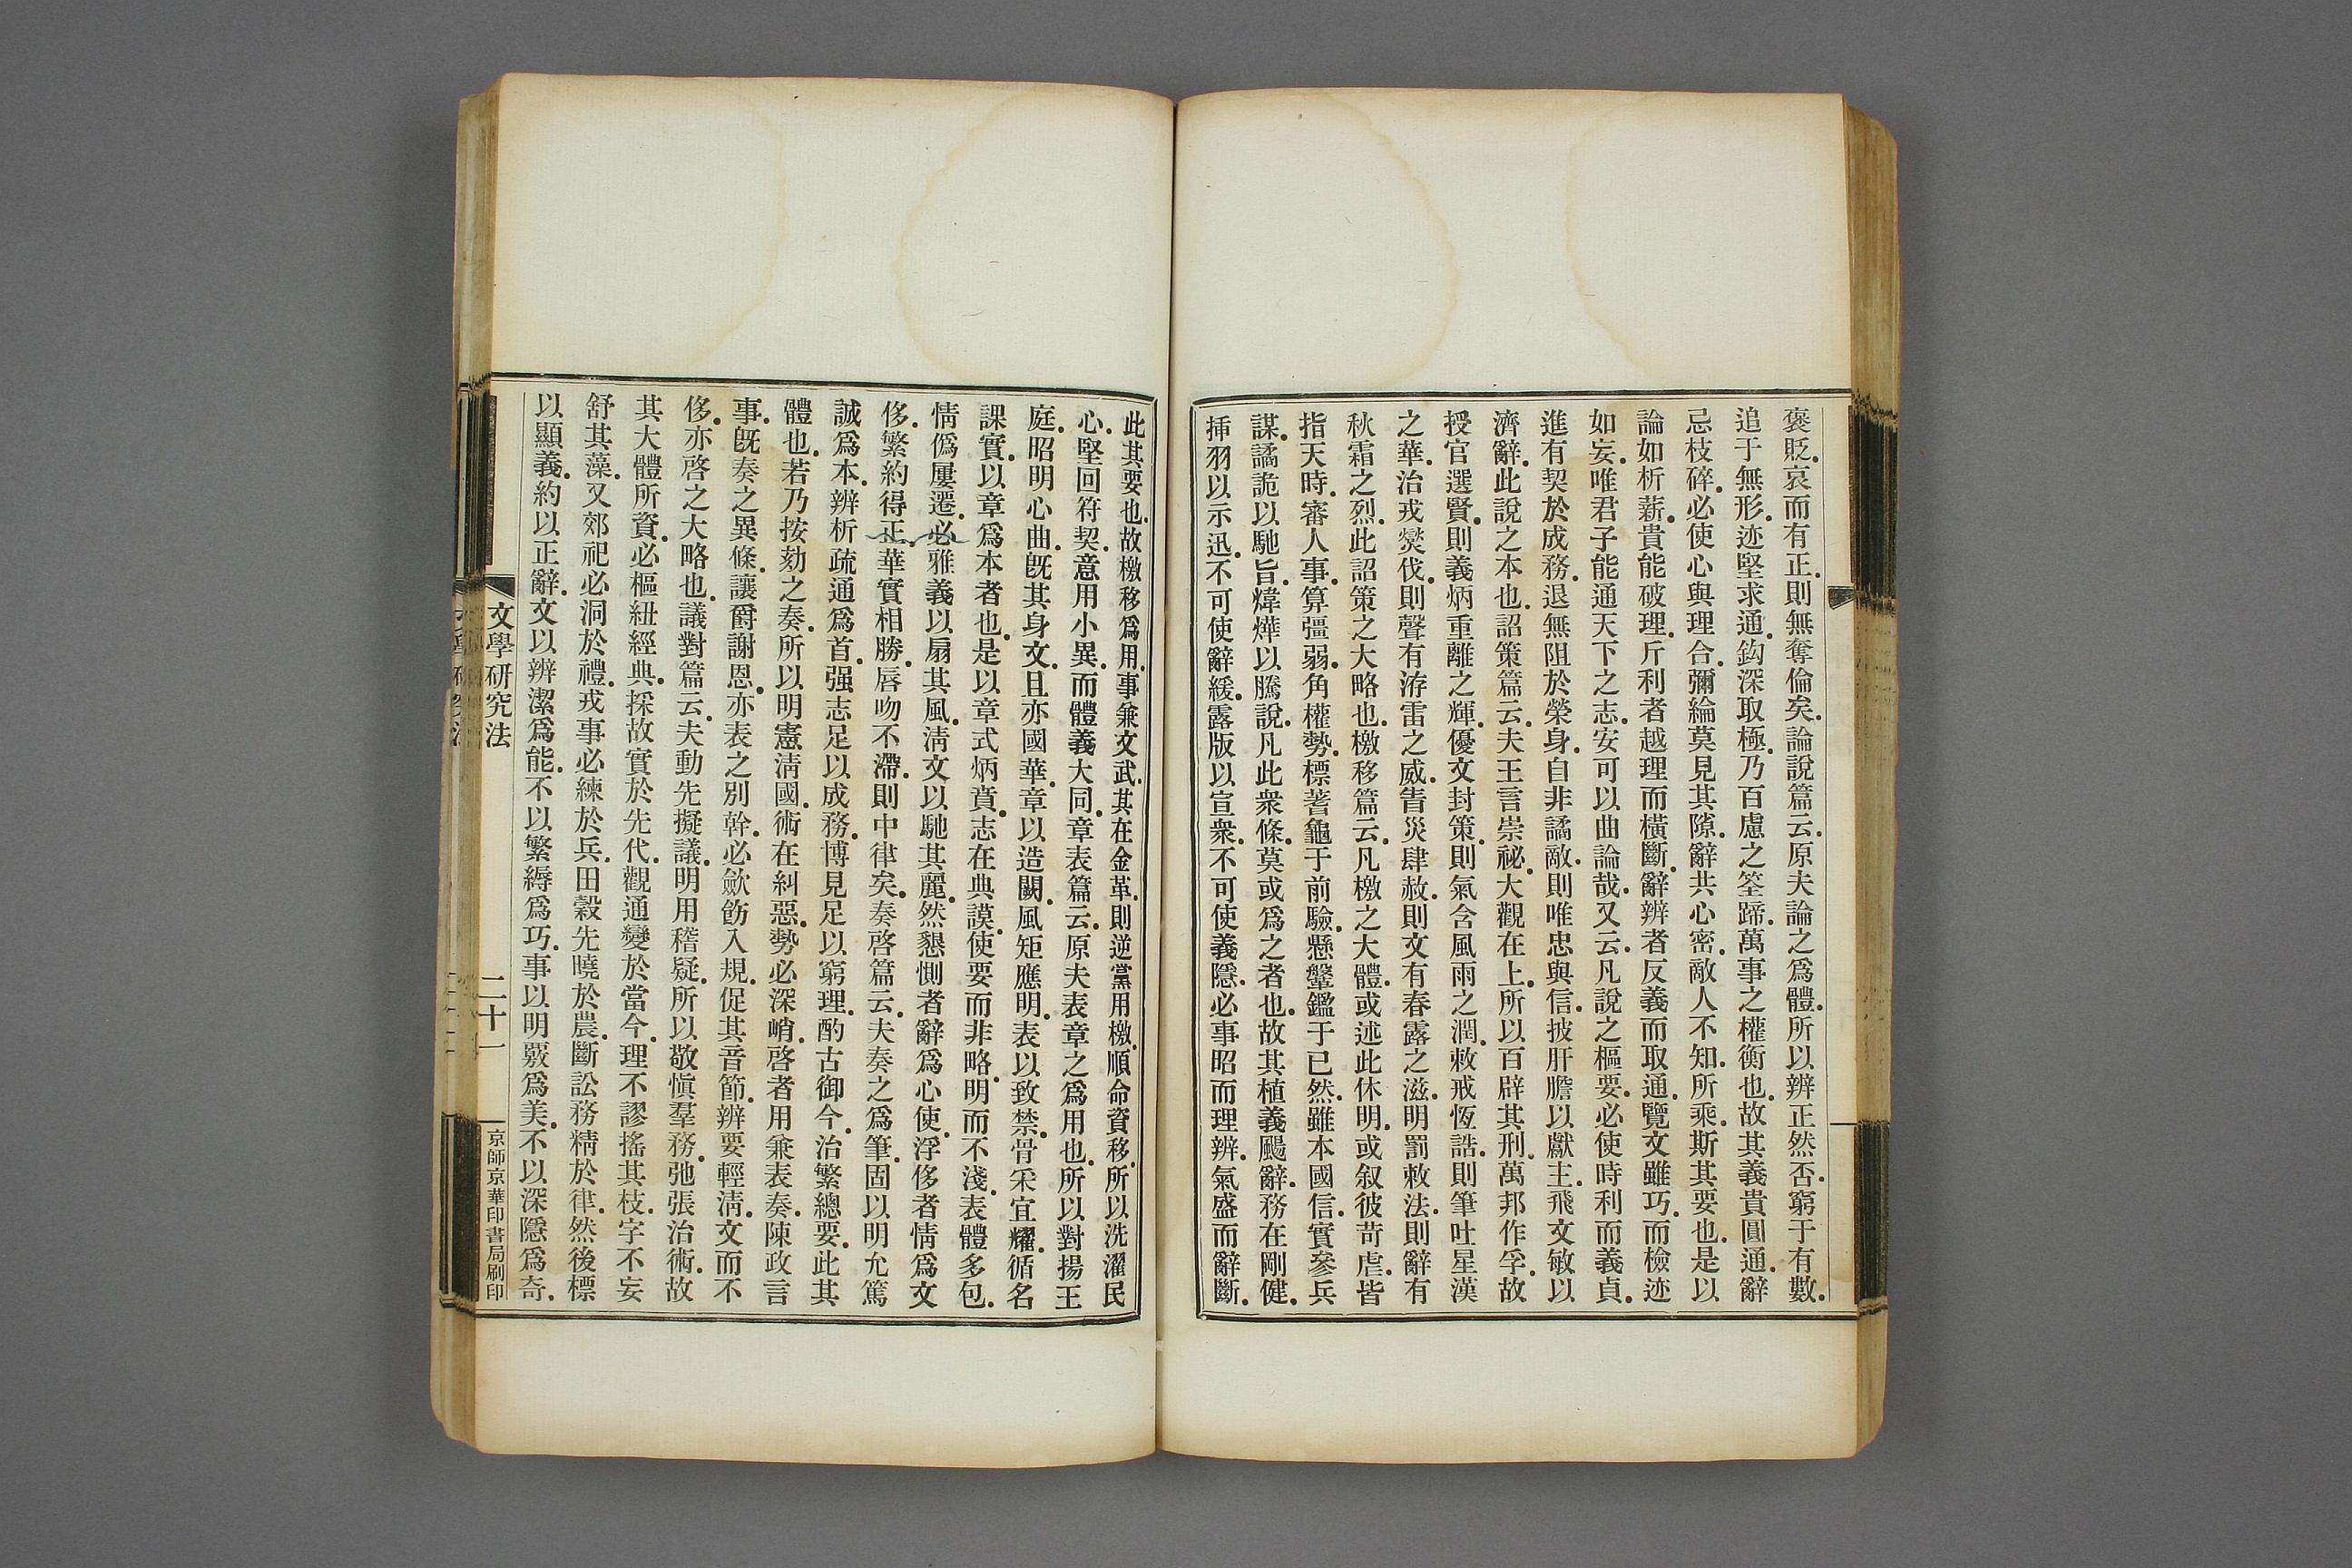 褒貶.哀而有正.則無奪倫矣.論說篇云.原夫論之爲體.所以辨正然否.窮于有數.
追于無形.迹堅求通.鈎深取極.乃百慮之筌蹄.萬事之權衡也.故其義貴圓通.辭
忌枝碎.必使心與理合.彌綸莫見其隙.辭共心密.敵人不知所乘.斯其要也.是以
論如析薪.貴能破理.斤利者越理而橫斷.辭辨者反義而取通.覽文雖巧.而檢迹
如妄.唯君子能通天下之志.安可以曲論哉.又云.凡說之樞要.必使時利而義貞.
進有契於成務.退無阻於榮身.自非譎敵.則唯忠與信.披肝膽以獻主.飛文敏以
濟辭.此說之本也.詔策篇云.夫王言崇祕.大觀在上.所以百辟其刑.萬邦作孚.故
授官選賢.則義炳重離之輝.優文封策.則氣含風雨之潤.敕戒恆誥.則筆吐星漢
之華.治戎爕伐.則聲有洊雷之威.眚災肆赦.則文有春露之滋.明罰敕法.則辭有
秋霜之烈.此詔策之大略也.檄移篇云.凡檄之大體.或述此休明.或叙彼苛虐.皆
指天時.審人事.算彊弱.角權勢.標蓍龜于前驗.懸鞶鑑于已然.雖本國信.實參兵
謀.譎詭以馳旨.煒燁以騰說.凡此衆條.莫或爲之者也.故其植義颺辭.務在剛健.
挿羽以示迅.不可使辭緩.露版以宣衆.不可使義隱.必事昭而理辨.氣盛而辭斷.
此其要也.故檄移爲用.事兼文武.其在金革.則逆黨用檄.順命資移.所以洗濯民
心.堅回符契.意用小異.而體義大同.章表篇云.原夫表章之爲用也.所以對揚王
庭.昭明心曲.旣其身文.且亦國華.章以造闕.風矩應明.表以致禁.骨采宜耀.循名
課實.以章爲本者也.是以章式炳賁.志在典謨.使要而非略.明而不淺.表體多包.
情僞屢遷.必雅義以扇其風.淸文以馳其麗.然懇惻者辭爲心使.浮侈者情爲文
侈.繁約得正.華實相勝.唇吻不滯.則中律矣.奏啓篇云.夫奏之爲筆.固以明允篤
誠爲本.辨析疏通爲首.强志足以成務.博見足以窮理.酌古御今.治繁總要.此其
體也.若乃按劾之奏.所以明憲淸國.術在糾惡.勢必深峭.啓者用兼表奏.陳政言
事.旣奏之異條.讓爵謝恩.亦表之別幹.必斂飭入規.促其音節.辨要輕淸.文而不
侈.亦啓之大略也.議對篇云.夫動先擬議.明用稽疑.所以敬愼羣務.弛張治術.故
其大體所資.必樞紐經典.採故實於先代.觀通變於當今.理不謬搖其枝.字不妄
舒其藻.又郊祀必洞於禮.戎事必練於兵.田穀先曉於農.斷訟務精於律.然後標
以顯義.約以正辭.文以辨潔爲能.不以繁縟爲巧.事以明覈爲美.不以深隱爲奇.
文學硏究法
二十一
京師京華印書局刷印